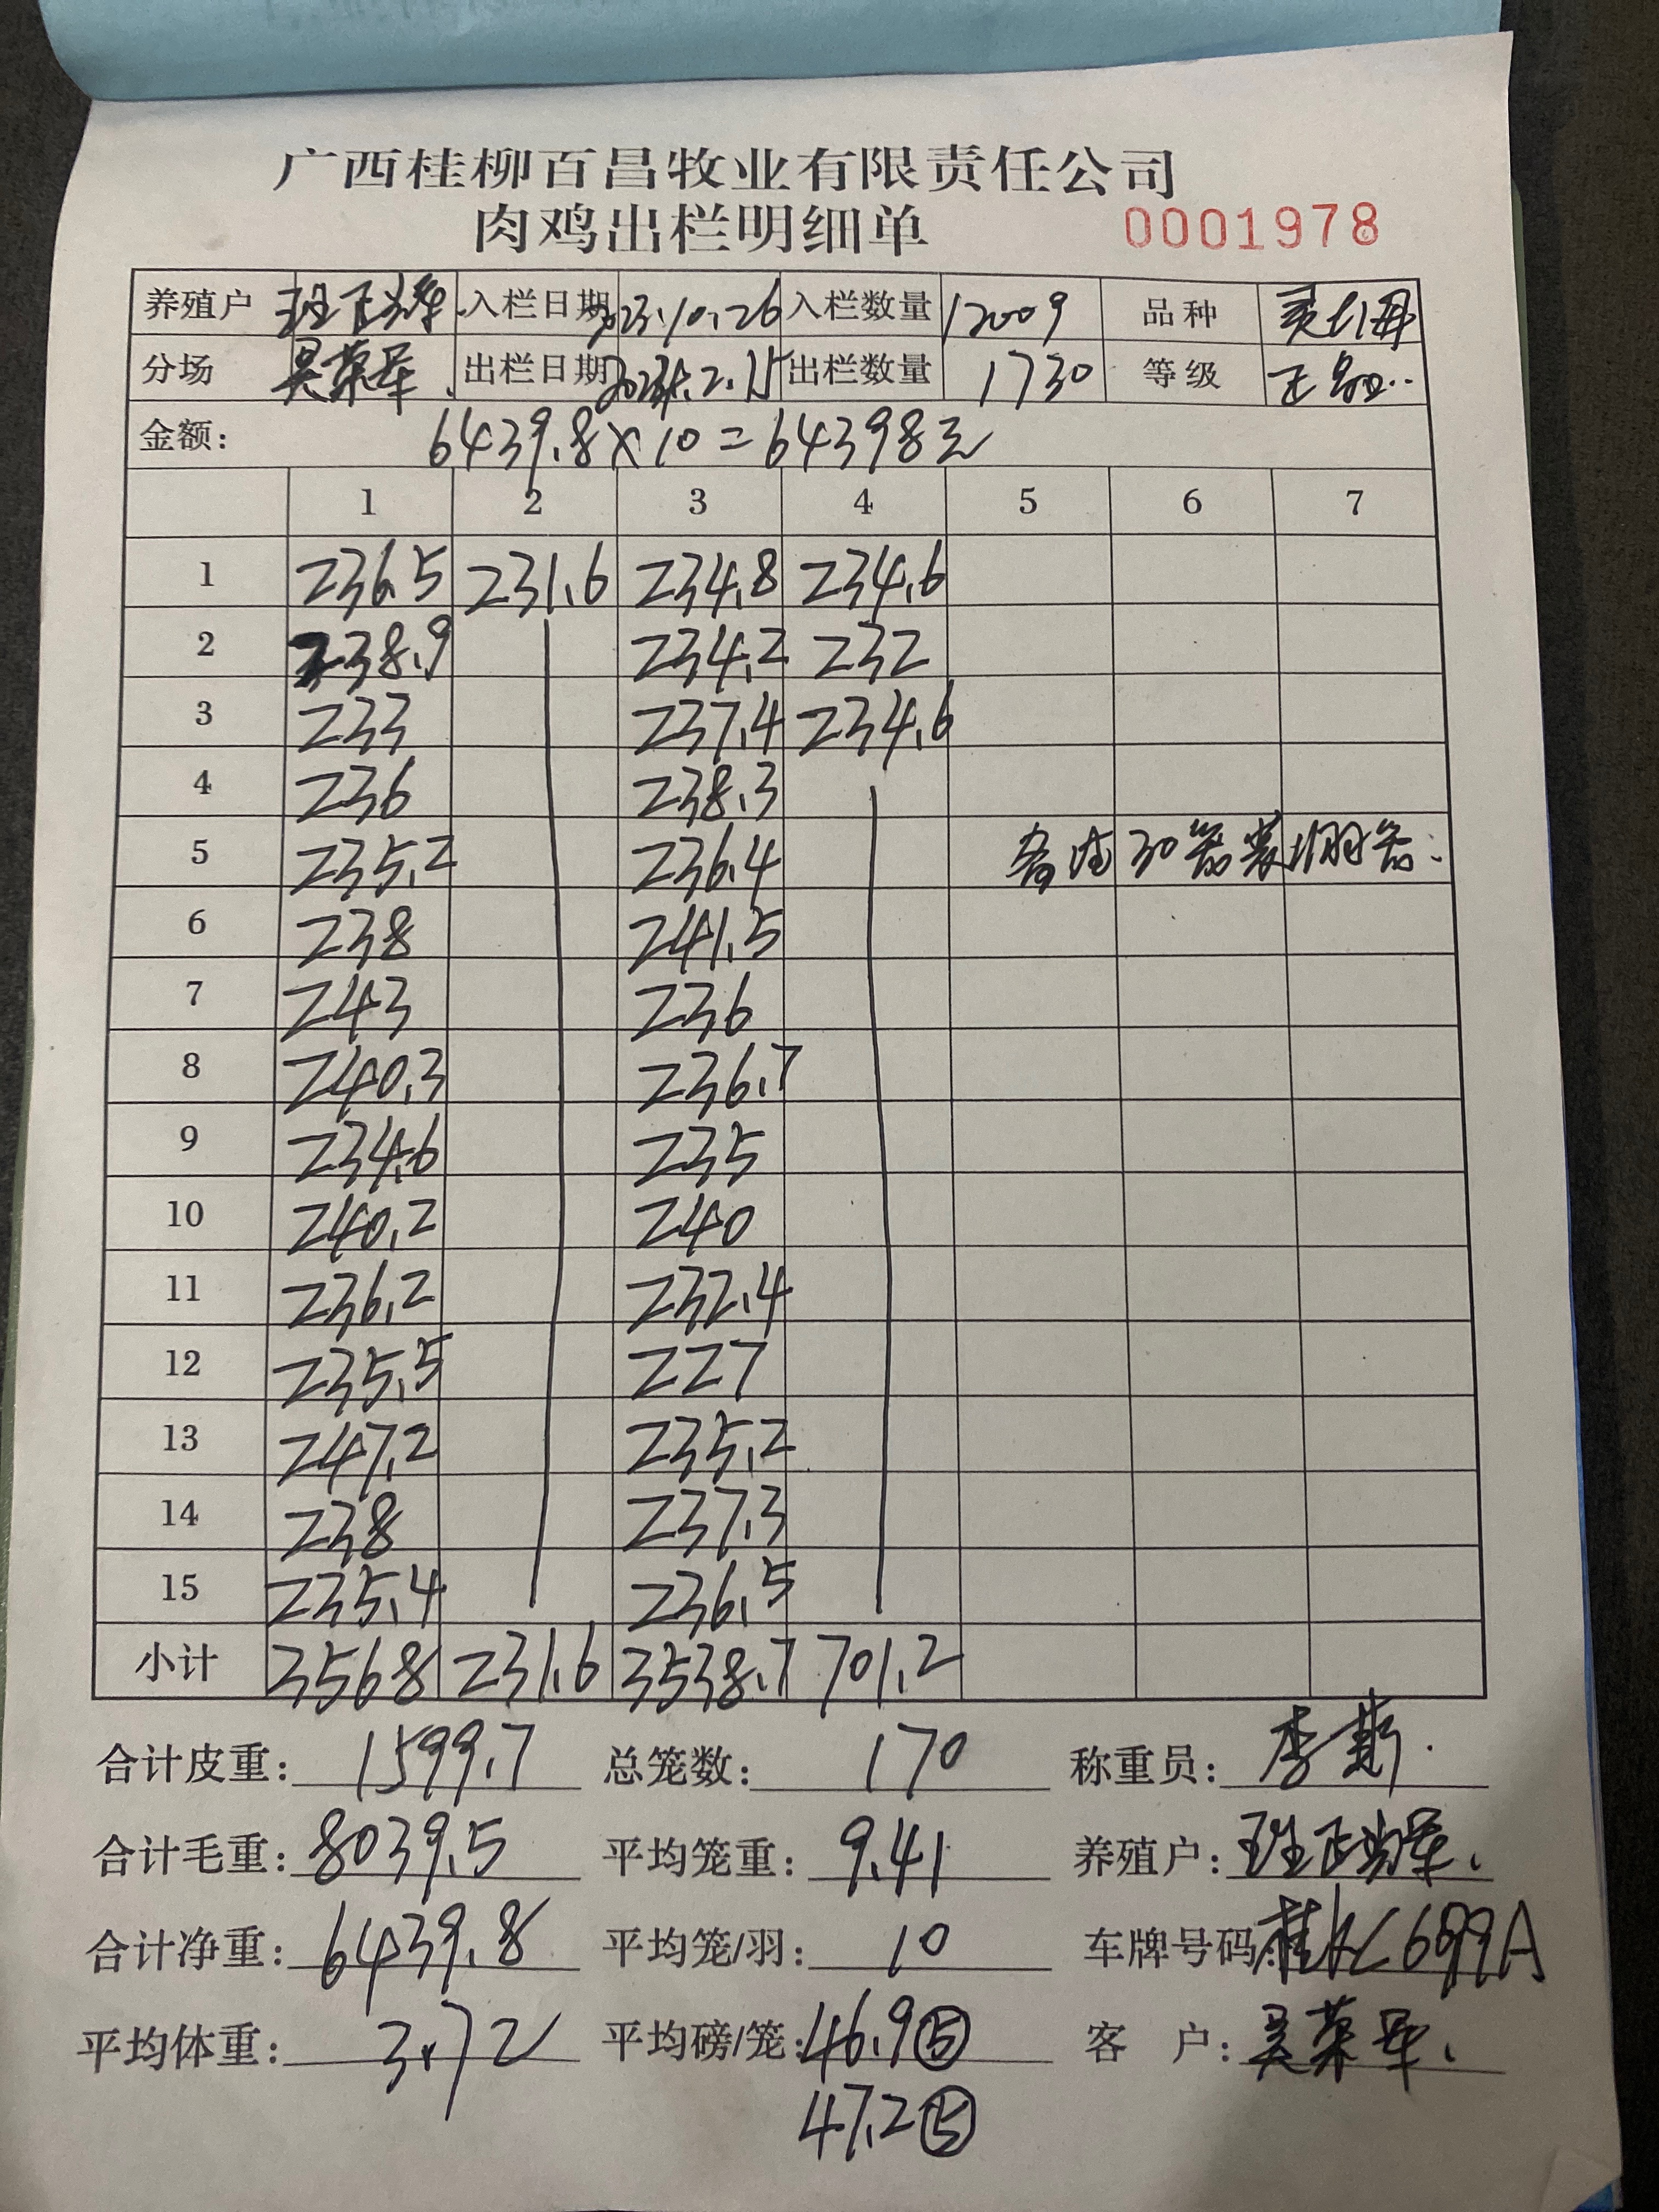 广西桂柳百昌牧业有限责任公司
肉鸡出栏明细单 0001978
养殖户 班正辉 入栏日期 2023.10.26 入栏数量 12009 品种
分场 吴荣军 出栏日期 2.15 出栏数量 1730 等级 正品
金额: 6439.8×10=64398元
1 2 3 4 5 6 7
1 236.5 231.6 234.8 234.6
2 238.9 234.2 232
3 233 237.4 234.6
4 236 238.3
5 235.2 236.4 备注30笼装11羽笼.
6 238 241.5
7 243 236
8 240.3 236.7
9 234.6 235
10 240.2 240
11 236.2 232.4
12 235.5 227
13 247.2 235.2
14 238 237.3
15 235.4 236.5
小计 3568 231.6 3538.7 701.2
合计皮重: 1599.7 总笼数: 170 称重员: 李
合计毛重: 8039.5 平均笼重: 9.41 养殖户: 班正辉.
合计净重: 6439.8 平均笼/羽: 10 车牌号码: 699A
平均体重: 3.72 平均磅/笼: 46.9⑤ 客 户: 吴荣军.
47.2⑤